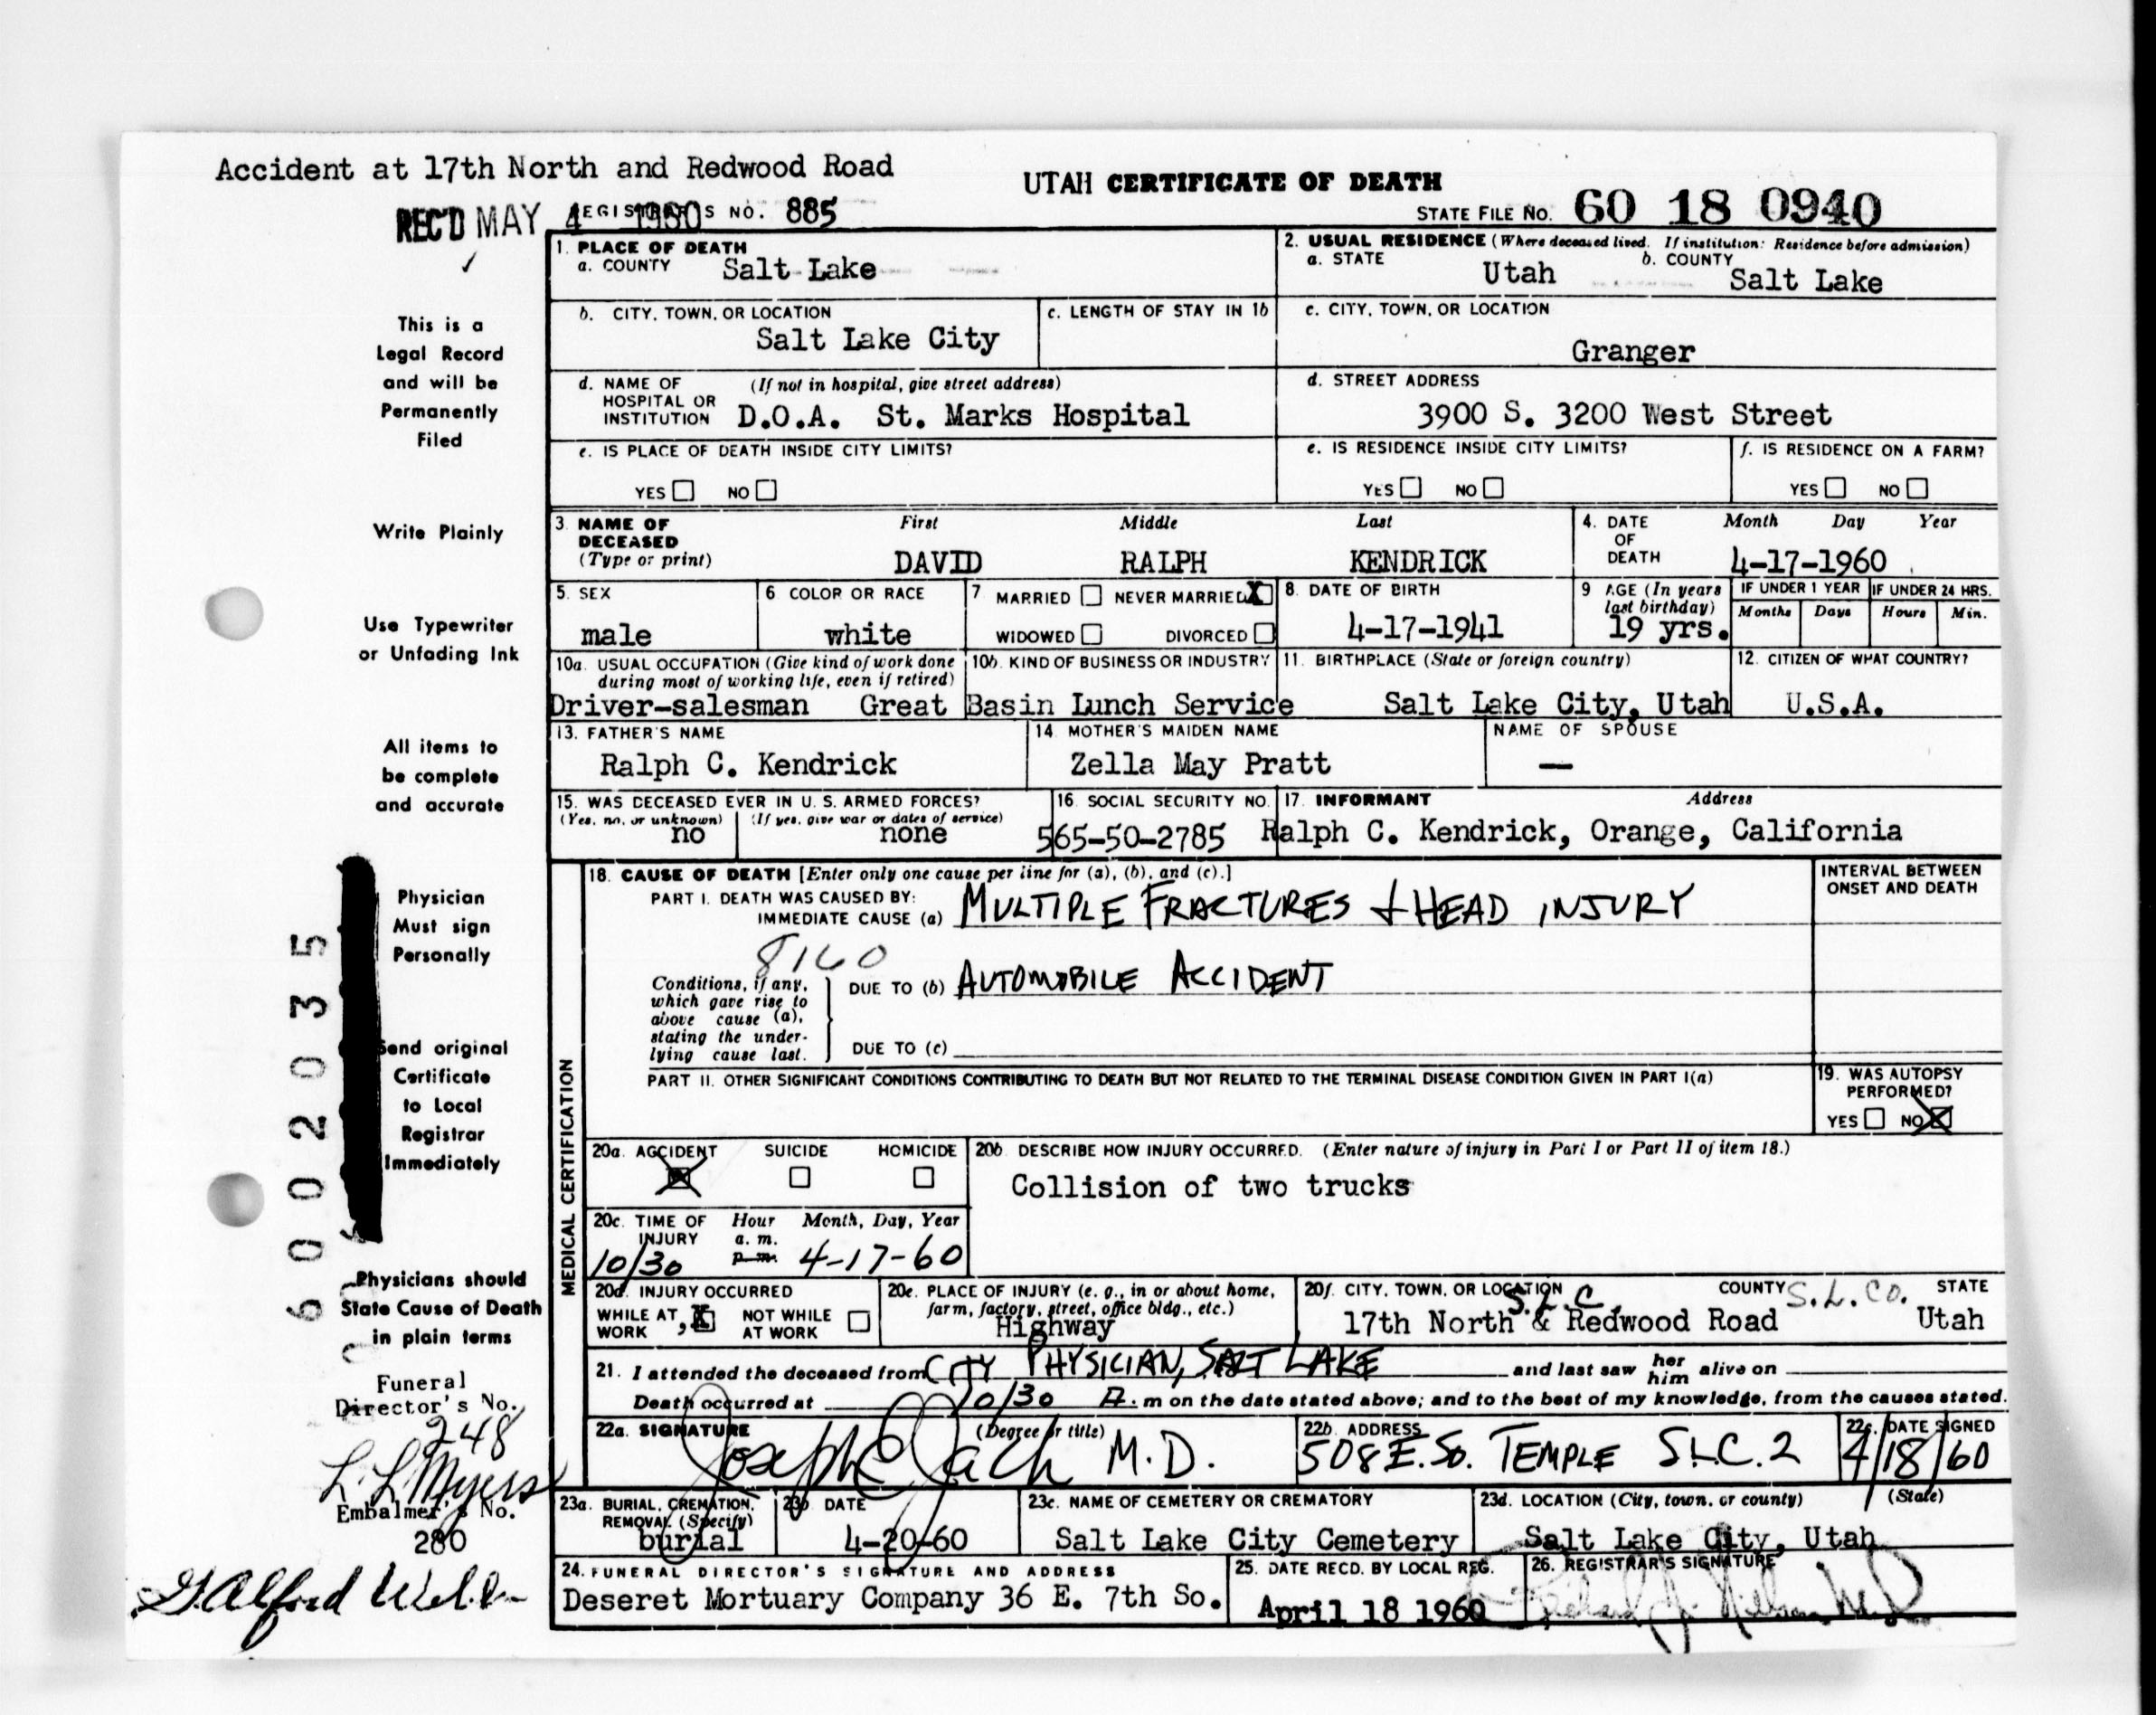 Accident at 17th North and Redwood Road
UTAH CERTIFICATE OF DEATH
REC'D MAY 4 1960 REGISTRAR'S NO. 885
STATE FILE NO. 60 18 0940
This is a
Legal Record
and will be
Permanently
Filed
Write Plainly
Use Typewriter
or Unfading Ink
All items to
be complete
and accurate
Physician
Must sign
Personally
Send original
Certificate
to Local
Registrar
Immediately
Physicians should
State Cause of Death
in plain terms
Funeral
Director's No.
248
L. L. Myers
Embalmer's No.
280
6002035
1. PLACE OF DEATH
a. COUNTY Salt Lake
2. USUAL RESIDENCE (Where deceased lived. If institution: Residence before admission)
a. STATE Utah b. COUNTY Salt Lake
b. CITY, TOWN, OR LOCATION Salt Lake City
c. LENGTH OF STAY IN 1b
c. CITY, TOWN, OR LOCATION Granger
d. NAME OF HOSPITAL OR INSTITUTION (If not in hospital, give street address)
D.O.A. St. Marks Hospital
d. STREET ADDRESS
3900 S. 3200 West Street
e. IS PLACE OF DEATH INSIDE CITY LIMITS?
YES NO
e. IS RESIDENCE INSIDE CITY LIMITS?
YES NO
f. IS RESIDENCE ON A FARM?
YES NO
3. NAME OF DECEASED (Type or print)
First Middle Last
DAVID RALPH KENDRICK
4. DATE OF DEATH Month Day Year
4-17-1960
5. SEX male
6 COLOR OR RACE white
7 MARRIED NEVER MARRIED X
WIDOWED DIVORCED
8. DATE OF BIRTH 4-17-1941
9 AGE (In years last birthday) 19 yrs.
IF UNDER 1 YEAR IF UNDER 24 HRS.
Months Days Hours Min.
10a. USUAL OCCUPATION (Give kind of work done during most of working life, even if retired)
10b. KIND OF BUSINESS OR INDUSTRY
Driver-salesman Great Basin Lunch Service
11. BIRTHPLACE (State or foreign country)
Salt Lake City, Utah
12. CITIZEN OF WHAT COUNTRY?
U.S.A.
13. FATHER'S NAME
Ralph C. Kendrick
14 MOTHER'S MAIDEN NAME
Zella May Pratt
NAME OF SPOUSE
—
15. WAS DECEASED EVER IN U. S. ARMED FORCES?
(Yes, no, or unknown) (If yes, give war or dates of service)
no none
16. SOCIAL SECURITY NO.
565-50-2785
17. INFORMANT Address
Ralph C. Kendrick, Orange, California
MEDICAL CERTIFICATION
18. CAUSE OF DEATH [Enter only one cause per line for (a), (b), and (c).]
INTERVAL BETWEEN ONSET AND DEATH
PART I. DEATH WAS CAUSED BY:
IMMEDIATE CAUSE (a) MULTIPLE FRACTURES + HEAD INJURY
8160
Conditions, if any, which gave rise to above cause (a), stating the underlying cause last.
DUE TO (b) AUTOMOBILE ACCIDENT
DUE TO (c)
PART II. OTHER SIGNIFICANT CONDITIONS CONTRIBUTING TO DEATH BUT NOT RELATED TO THE TERMINAL DISEASE CONDITION GIVEN IN PART I(a)
19. WAS AUTOPSY PERFORMED?
YES NO X
20a. ACCIDENT X SUICIDE HOMICIDE
20b. DESCRIBE HOW INJURY OCCURRED. (Enter nature of injury in Part I or Part II of item 18.)
Collision of two trucks
20c. TIME OF INJURY Hour Month, Day, Year
10/30 a. m. p. m. 4-17-60
20d. INJURY OCCURRED
WHILE AT WORK X NOT WHILE AT WORK
20e. PLACE OF INJURY (e. g., in or about home, farm, factory, street, office bldg., etc.)
Highway
20f. CITY, TOWN, OR LOCATION COUNTY STATE
S.L.C. S.L.CO.
17th North & Redwood Road Utah
21. I attended the deceased from CITY PHYSICIAN, SALT LAKE and last saw her him alive on
Death occurred at 10/30 A. m on the date stated above; and to the best of my knowledge, from the causes stated.
22a. SIGNATURE (Degree or title)
M.D.
22b. ADDRESS
508 E. SO. TEMPLE S.L.C. 2
22c. DATE SIGNED
4/18/60
23a. BURIAL, CREMATION, REMOVAL (Specify)
burial
23b DATE
4-20-60
23c. NAME OF CEMETERY OR CREMATORY
Salt Lake City Cemetery
23d. LOCATION (City, town, or county) (State)
Salt Lake City, Utah
24. FUNERAL DIRECTOR'S SIGNATURE AND ADDRESS
Deseret Mortuary Company 36 E. 7th So.
25. DATE RECD. BY LOCAL REG.
April 18 1960
26. REGISTRAR'S SIGNATURE